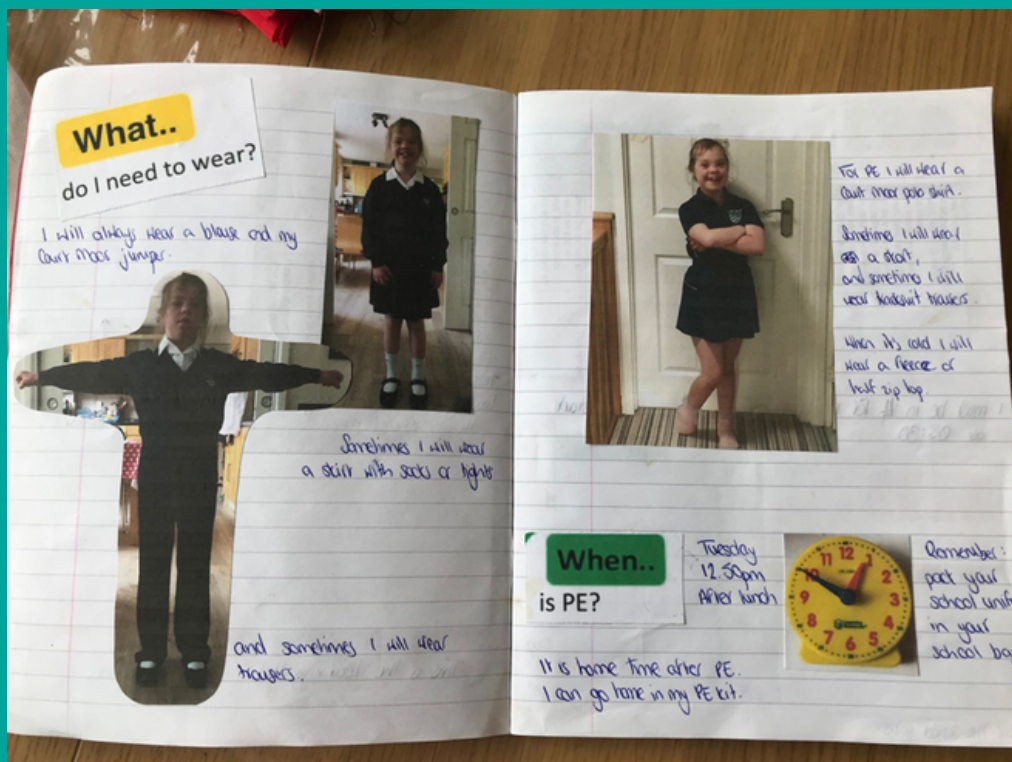 What..
do I need to wear?
I will always wear a blouse and my
Court Moor jumper.
Sometimes I will wear
a skirt with socks or tights
and sometimes I will wear
trousers.
For PE I will wear a
Court Moor polo shirt.
Sometimes I will wear
a skort,
and sometimes I will
wear tracksuit trousers.
When its cold I will
wear a fleece or
half zip top.
When..
is PE?
Tuesday
12.50pm
After lunch
12
1
2
3
4
5
6
7
8
9
10
11
Remember:
pack your
school unif
in your
school ba
It is home time after PE.
I can go home in my PE kit.